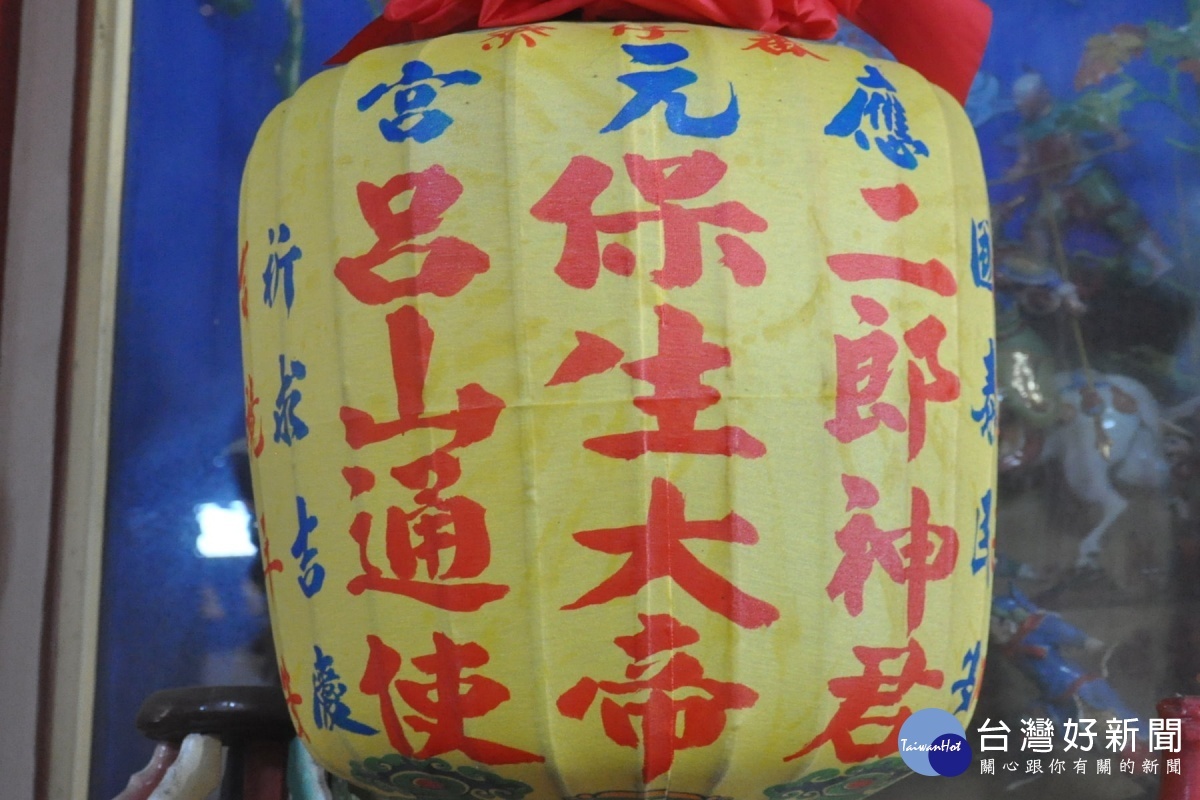 應元宮
二郎神君
保生大帝
呂山通使
祈求吉慶
TaiwanHot
台灣好新聞
關心跟你有關的新聞